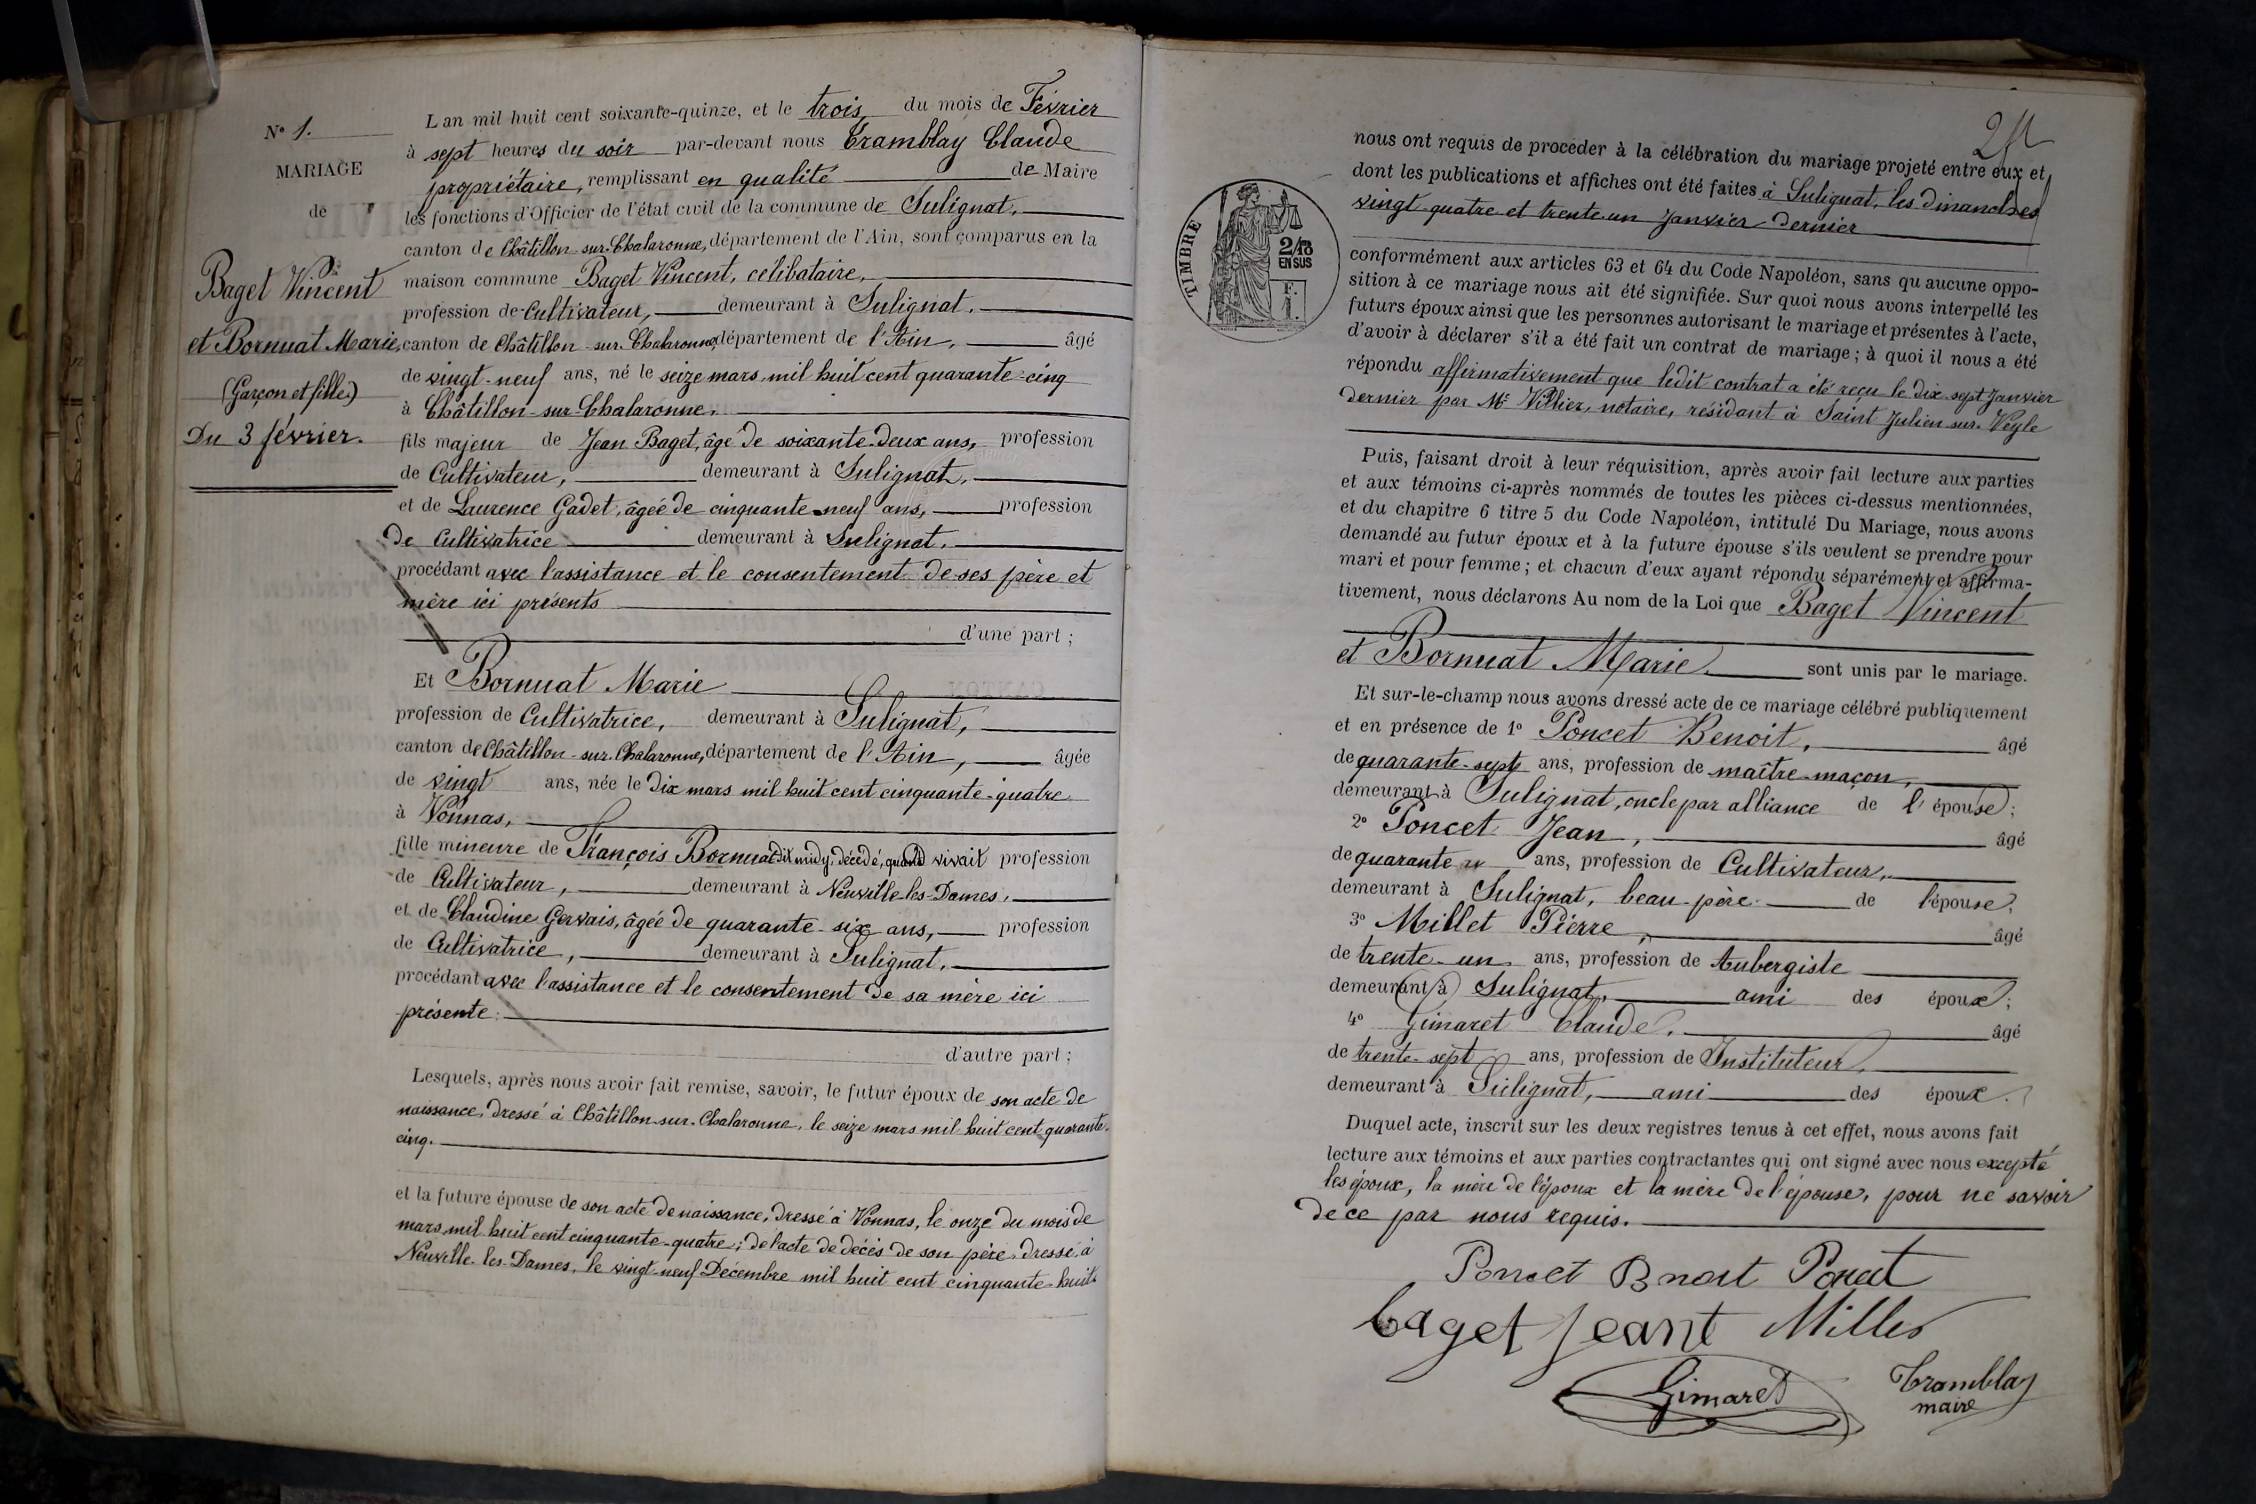 N° 1.
MARIAGE
de
Baget Vincent
et Bornuat Marie,
(Garçon et fille.)
Du 3 février.
L'an mil huit cent soixante-quinze, et le trois du mois de Février
à sept heures du soir par-devant nous Tramblay Claude
propriétaire, remplissant en qualité de Maire
les fonctions d'Officier de l'état civil de la commune de Sulignat,
canton de Châtillon-sur-Chalaronne, département de l'Ain, sont comparus en la
maison commune Baget Vincent, célibataire,
profession de Cultivateur, demeurant à Sulignat,
canton de Châtillon-sur-Chalaronne, département de l'Ain, âgé
de vingt-neuf ans, né le seize mars mil huit cent quarante-cinq
à Châtillon-sur-Chalaronne,
fils majeur de Jean Baget, âgé de soixante-deux ans, profession
de Cultivateur, demeurant à Sulignat,
et de Laurence Gadet, âgée de cinquante-neuf ans, profession
de Cultivatrice demeurant à Sulignat,
procédant avec l'assistance et le consentement de ses père et
mère ici présents
d'une part ;
Et Bornuat Marie
profession de Cultivatrice, demeurant à Sulignat,
canton de Châtillon-sur-Chalaronne, département de l'Ain, âgée
de vingt ans, née le dix mars mil huit cent cinquante-quatre
à Vonnas,
fille mineure de François Bornuat dit midy, décédé, quand vivait profession
de Cultivateur, demeurant à Neuville-les-Dames,
et de Claudine Gervais, âgée de quarante-six ans, profession
de Cultivatrice, demeurant à Sulignat,
procédant avec l'assistance et le consentement de sa mère ici
présente.
d'autre part ;
Lesquels, après nous avoir fait remise, savoir, le futur époux de son acte de
naissance, dressé à Châtillon-sur-Chalaronne, le seize mars mil huit cent quarante-
cinq.
et la future épouse de son acte de naissance, dressé à Vonnas, le onze du mois de
mars mil huit cent cinquante-quatre ; de l'acte de décès de son père, dressé à
Neuville-les-Dames, le vingt-neuf Décembre mil huit cent cinquante-huit
TIMBRE
2/10
EN SUS
F.
1.
nous ont requis de procéder à la célébration du mariage projeté entre eux et
dont les publications et affiches ont été faites à Sulignat, les dimanches
vingt-quatre et trente-un Janvier dernier
conformément aux articles 63 et 64 du Code Napoléon, sans qu'aucune oppo-
sition à ce mariage nous ait été signifiée. Sur quoi nous avons interpellé les
futurs époux ainsi que les personnes autorisant le mariage et présentes à l'acte,
d'avoir à déclarer s'il a été fait un contrat de mariage ; à quoi il nous a été
répondu affirmativement que ledit contrat a été reçu le dix-sept Janvier
dernier par Me Villier, notaire, résidant à Saint Julien-sur-Veyle
Puis, faisant droit à leur réquisition, après avoir fait lecture aux parties
et aux témoins ci-après nommés de toutes les pièces ci-dessus mentionnées,
et du chapitre 6 titre 5 du Code Napoléon, intitulé Du Mariage, nous avons
demandé au futur époux et à la future épouse s'ils veulent se prendre pour
mari et pour femme ; et chacun d'eux ayant répondu séparément et affirma-
tivement, nous déclarons Au nom de la Loi que Baget Vincent
et Bornuat Marie sont unis par le mariage.
Et sur-le-champ nous avons dressé acte de ce mariage célébré publiquement
et en présence de 1° Poncet Benoit, âgé
de quarante-sept ans, profession de maître-maçon,
demeurant à Sulignat, oncle par alliance de l'épouse ;
2° Poncet Jean, âgé
de quarante ans, profession de Cultivateur,
demeurant à Sulignat, beau-père de l'épouse,
3° Millet Pierre, âgé
de trente-un ans, profession de Aubergiste
demeurant à Sulignat, ami des époux ;
4° Gimaret Claude, âgé
de trente-sept ans, profession de Instituteur,
demeurant à Sulignat, ami des époux.
Duquel acte, inscrit sur les deux registres tenus à cet effet, nous avons fait
lecture aux témoins et aux parties contractantes qui ont signé avec nous excepté
les époux, la mère de l'époux et la mère de l'épouse, pour ne savoir
de ce par nous requis.
Poncet Bnoit Poncet
baget jeant Millet
Gimaret Tramblay
maire